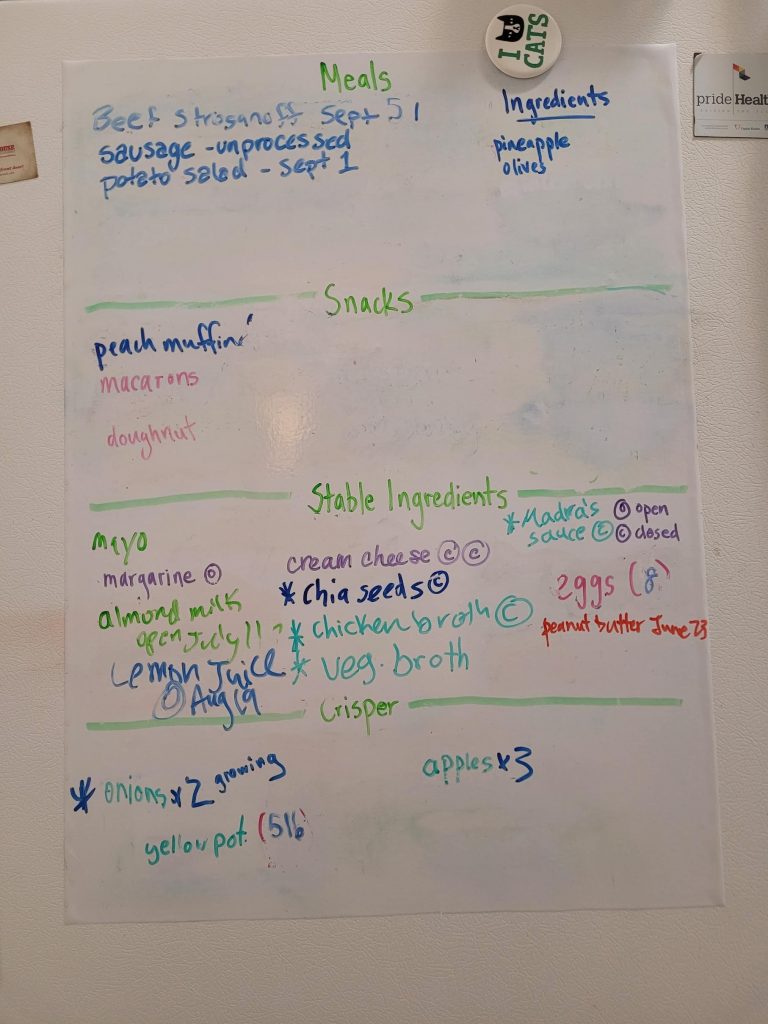 I CATS
pride Health
Meals
Beef Stroganoff Sept 5 1
sausage - unprocessed
potato salad - Sept 1
Ingredients
pineapple
olives
Snacks
peach muffins
macarons
doughnut
Stable Ingredients
mayo
margarine O
almond milk
open July 11
Lemon Juice
O Aug 19
cream cheese C C
* chia seeds C
* chicken broth C
* veg. broth
* Madras
sauce C
O open
C closed
eggs (8)
peanut butter June 23
Crisper
* onions x 2 growing
yellow pot. (5lb
apples x 3